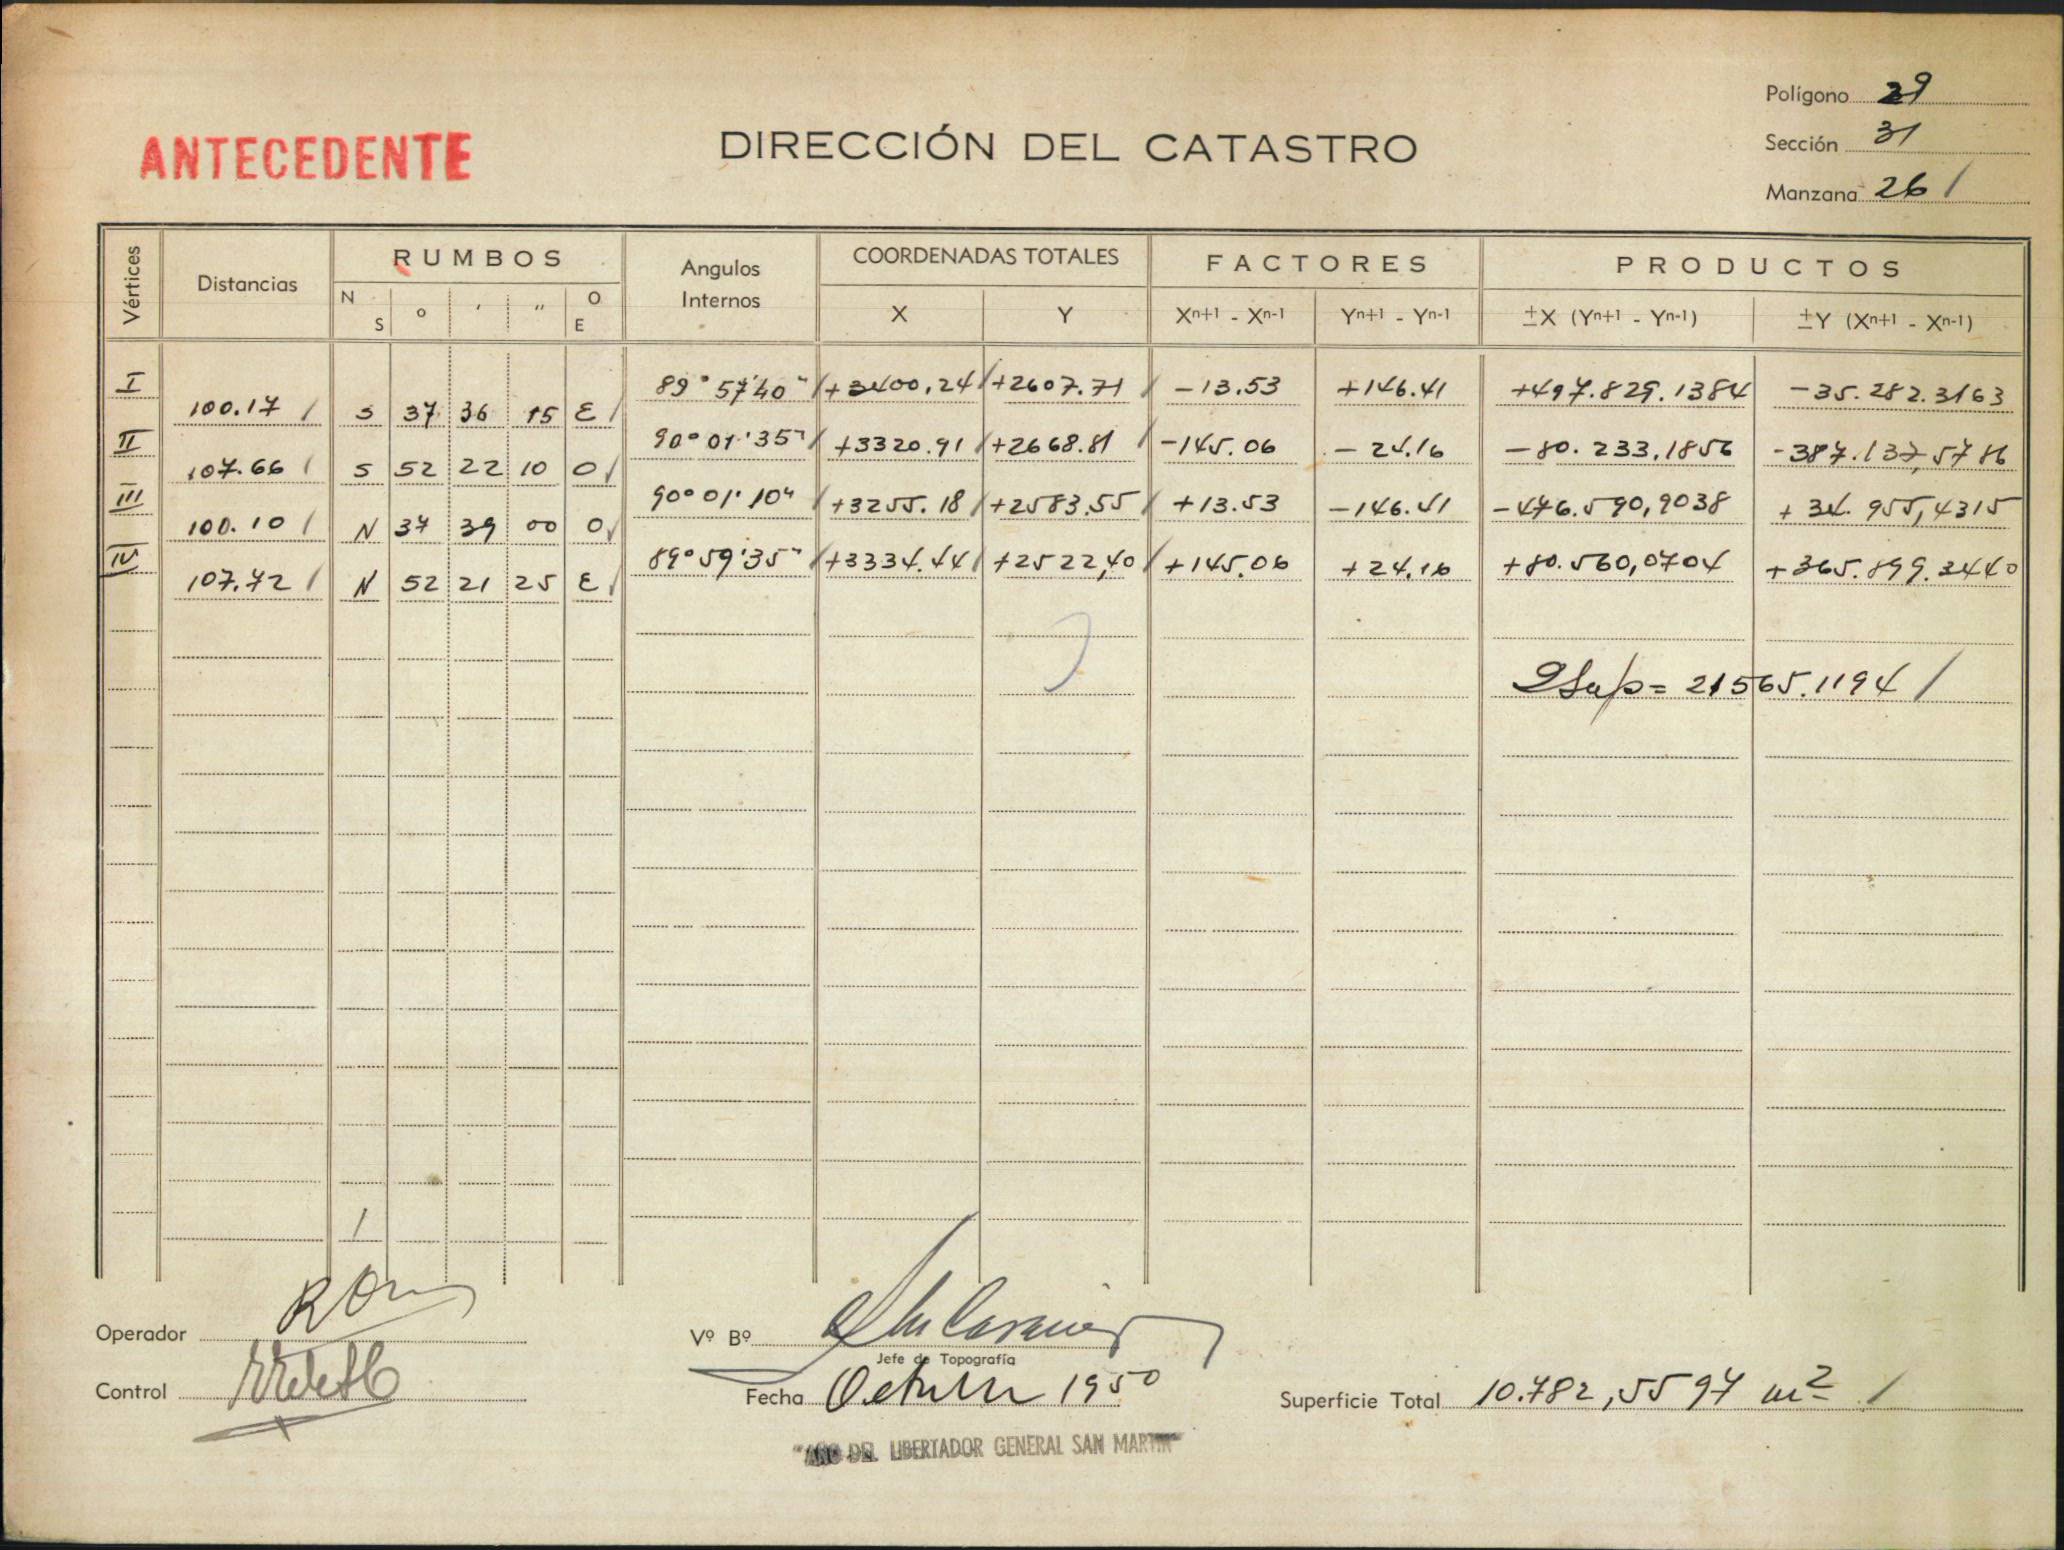 Polígono 29
ANTECEDENTE
DIRECCIÓN DEL CATASTRO
Sección 31
Manzana 26 /
Vértices
Distancias
RUMBOS
N S ° ' " O E
Angulos Internos
COORDENADAS TOTALES
X Y
FACTORES
Xn+1 - Xn-1 Yn+1 - Yn-1
PRODUCTOS
±X (Yn+1 - Yn-1) ±Y (Xn+1 - Xn-1)
I 89° 57' 40" / +3400,24 / +2607.71 / -13.53 +146.41 +497.829.1384 -35.282.3163
100.17 / S 37 36 15 E /
II 90° 01' 35" / +3320.91 / +2668.81 / -145.06 -24.16 -80.233,1856 -387.137,5786
107.66 / S 52 22 10 O /
III 90° 01' 10" / +3255.18 / +2583.55 / +13.53 -146.41 -476.590,9038 +34.955,4315
100.10 / N 37 39 00 O /
IV 89° 59' 35" / +3334.44 / +2522,40 / +145.06 +24.16 +80.560,0704 +365.899.3440
107.72 / N 52 21 25 E /
2Sup= 21565.1194 /
Operador
Vº Bº
Jefe de Topografía
Control
Fecha Octubre 1950
Superficie Total 10.782,5597 m2 /
"AÑO DEL LIBERTADOR GENERAL SAN MARTIN"